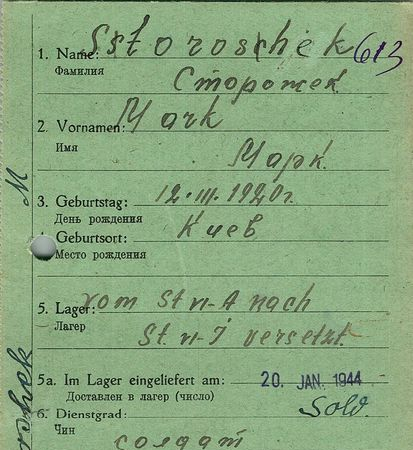 1. Name: Sstoroschek 613
Фамилия Сторожек
2. Vornamen: Mark
Имя Марк.
3. Geburtstag: 12.III.1920г.
День рождения
4. Geburtsort: Киев
Место рождения
5. Lager: vom St VI-A nach
Лагер St. VI-J versetzt.
5a. Im Lager eingeliefert am: 20. JAN. 1944
Доставлен в лагер (число)
6. Dienstgrad: Sold.
Чин солдат
M